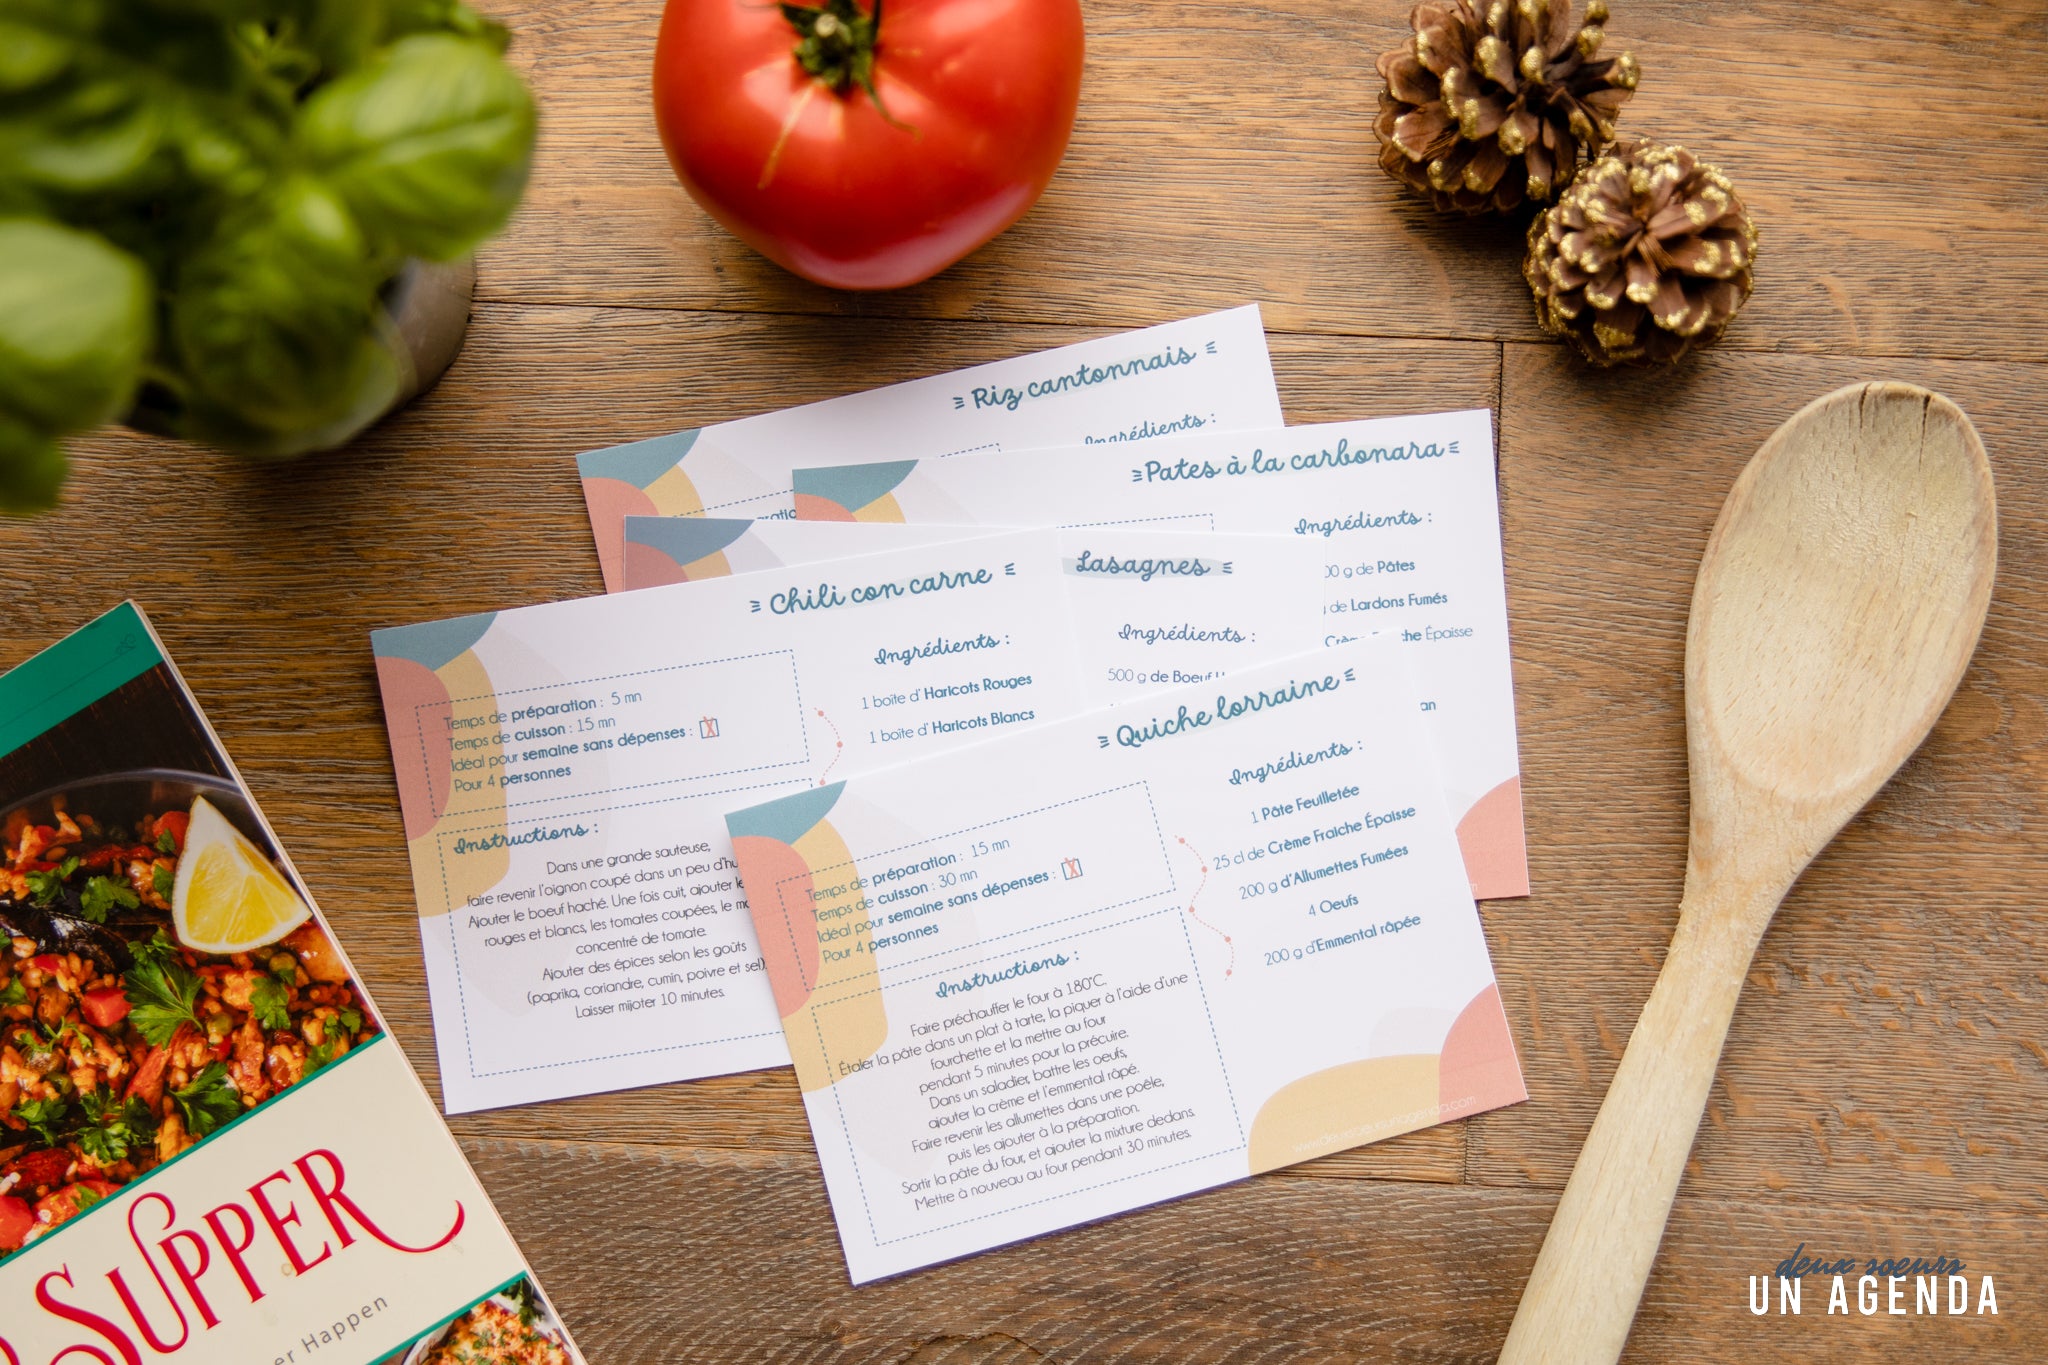 Riz cantonnais
Ingrédients :
Pates à la carbonara
Ingrédients :
00 g de Pâtes
de Lardons Fumés
Épaisse
Lasagnes
Ingrédients :
500 g de Boeuf
Chili con carne
Temps de préparation : 5 mn
Temps de cuisson : 15 mn
Idéal pour semaine sans dépenses : X
Pour 4 personnes
Ingrédients :
1 boîte d' Haricots Rouges
1 boîte d' Haricots Blancs
Instructions :
Dans une grande sauteuse,
faire revenir l'oignon coupé dans un peu d'hu
Ajouter le boeuf haché. Une fois cuit, ajouter le
rouges et blancs, les tomates coupées, le ma
concentré de tomate.
Ajouter des épices selon les goûts
(paprika, coriandre, cumin, poivre et sel).
Laisser mijoter 10 minutes.
Quiche lorraine
Temps de préparation : 15 mn
Temps de cuisson : 30 mn
Idéal pour semaine sans dépenses : X
Pour 4 personnes
Ingrédients :
1 Pâte Feuilletée
25 cl de Crème Fraîche Épaisse
200 g d'Allumettes Fumées
4 Oeufs
200 g d'Emmental râpée
Instructions :
Faire préchauffer le four à 180°C.
Étaler la pâte dans un plat à tarte, la piquer à l'aide d'une
fourchette et la mettre au four
pendant 5 minutes pour la précuire.
Dans un saladier, battre les oeufs,
ajouter la crème et l'emmental râpé.
Faire revenir les allumettes dans une poêle,
puis les ajouter à la préparation.
Sortir la pâte du four, et ajouter la mixture dedans.
Mettre à nouveau au four pendant 30 minutes.
www.deuxsoeursunagenda.com
SUPPER
er Happen
deux soeurs
UN AGENDA